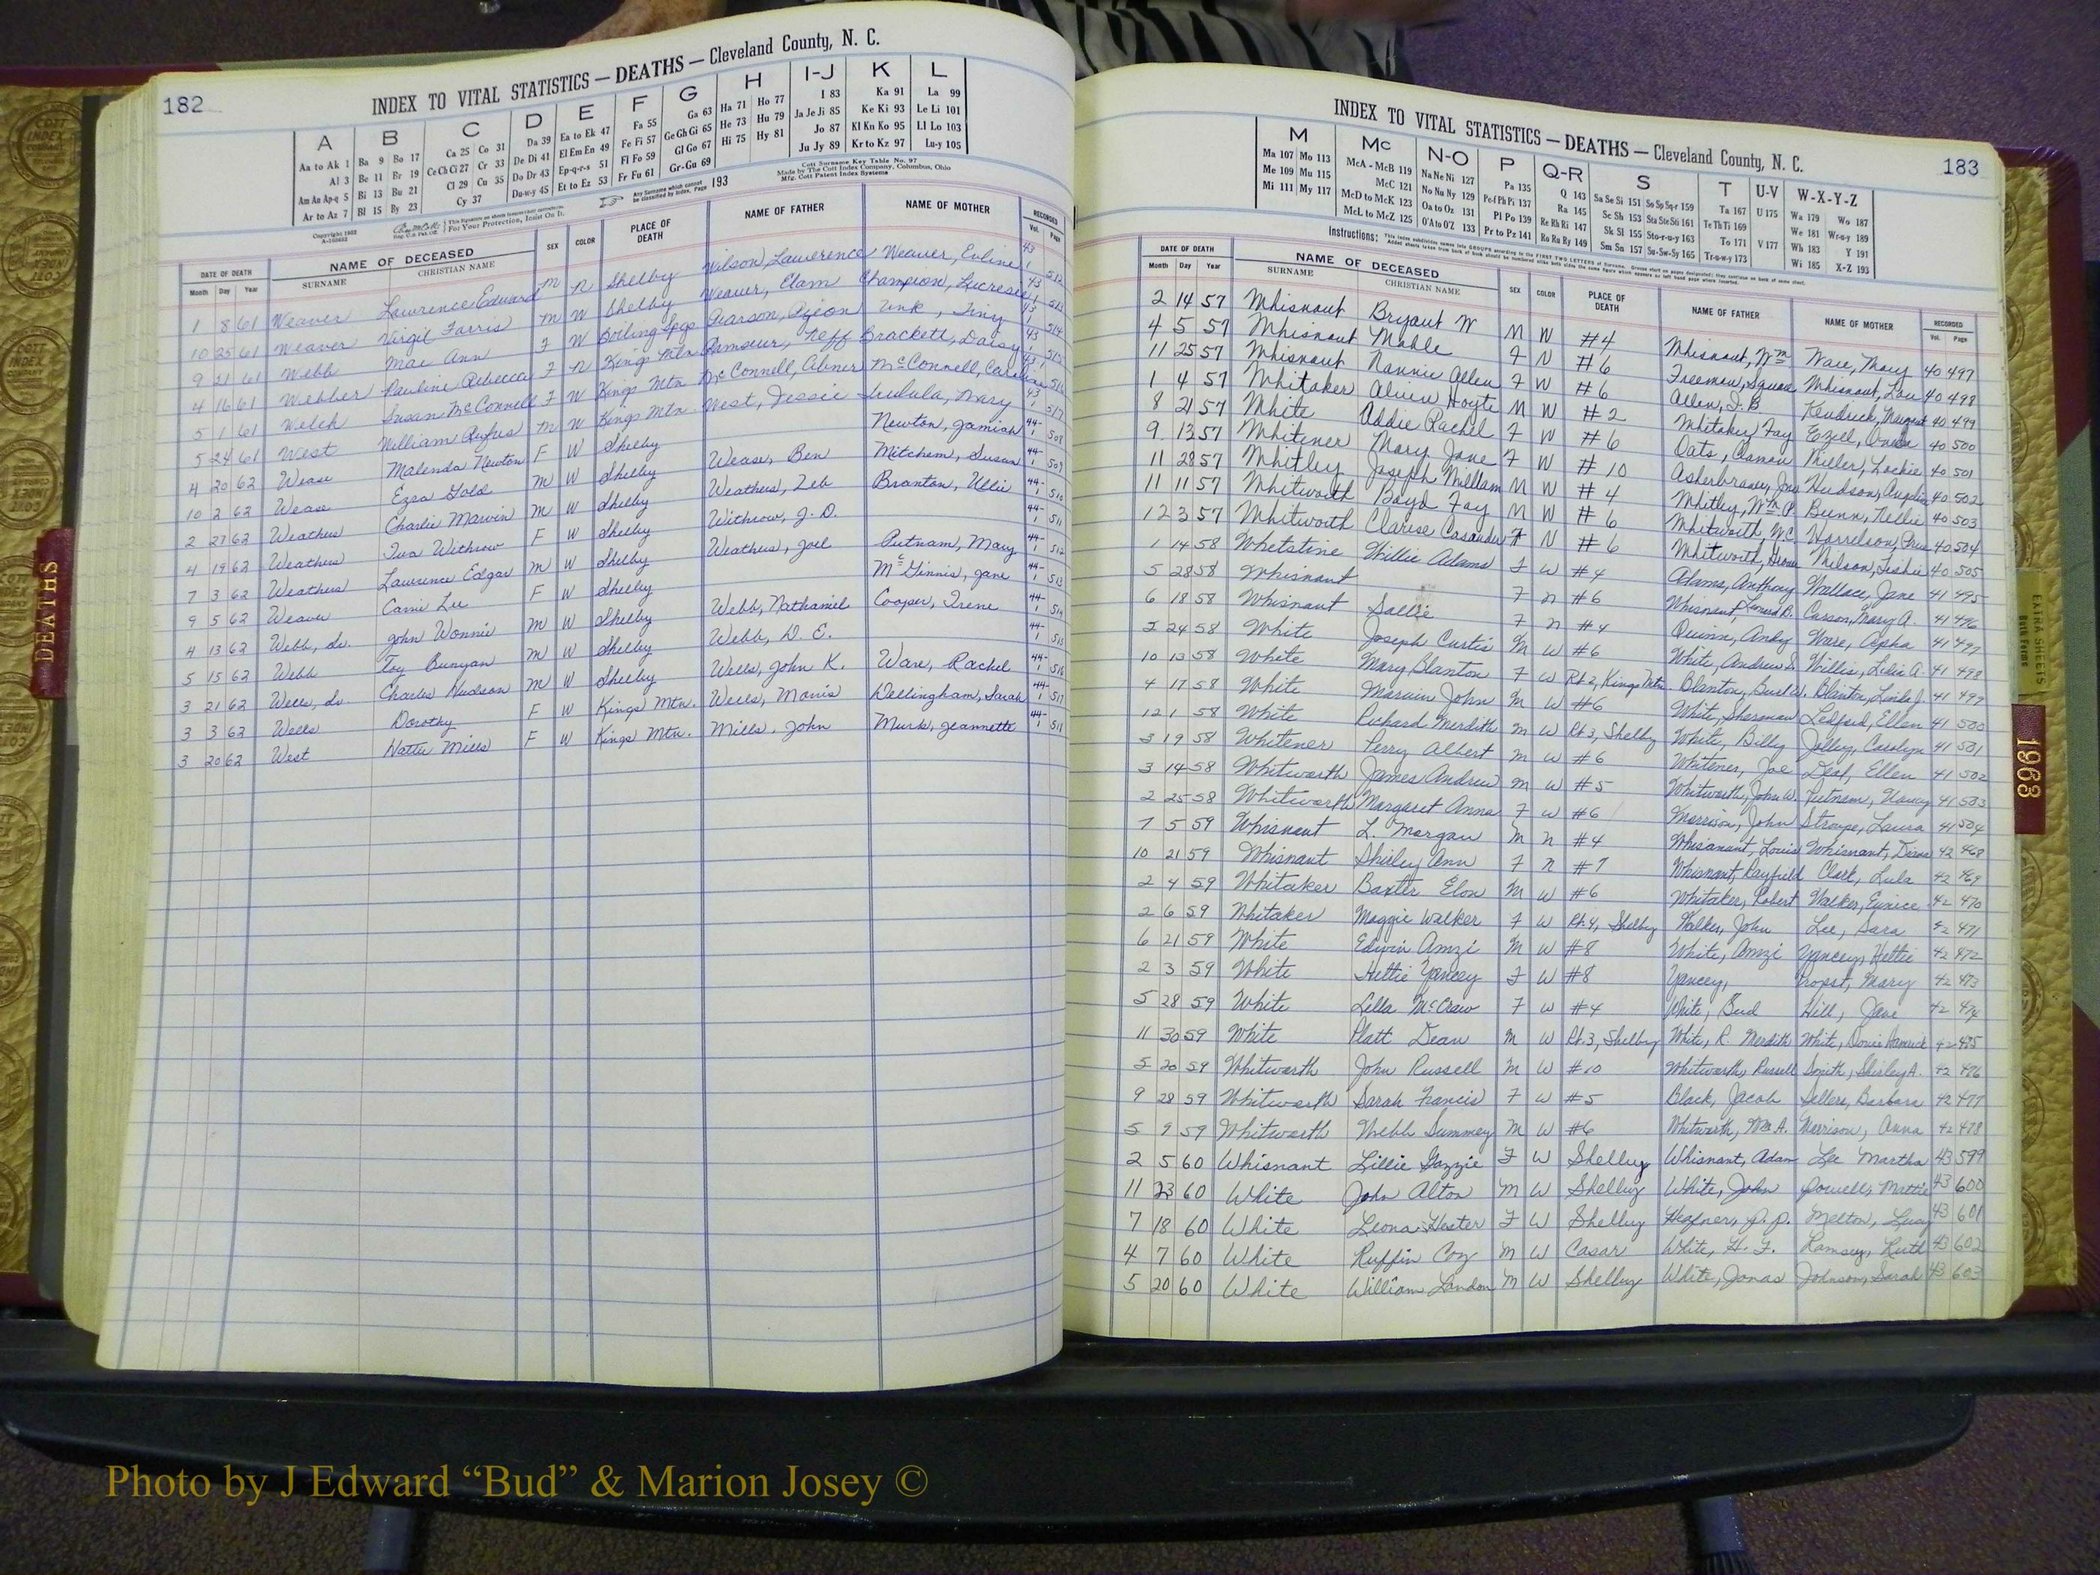 182
INDEX TO VITAL STATISTICS — DEATHS — Cleveland County, N. C.
A B C D E F G H I-J K L
Aa to Ak 1 Ba 9 Bo 17 Ca 25 Co 31 Da 39 Ea to Ek 47 Fa 55 Ga 63 Ha 71 Ho 77 I 83 Ka 91 La 99
Al 3 Be 11 Br 19 Ce Ch Ci 27 Cr 33 De Di 41 El Em En 49 Fe Fi 57 Ge Gh Gi 65 He 73 Hu 79 Ja Je Ji 85 Ke Ki 93 Le Li 101
Am An Ap-q 5 Bi 13 Bu 21 Cl 29 Cu 35 Do Dr 43 Ep-q-r-s 51 Fl Fo 59 Gl Go 67 Hi 75 Hy 81 Jo 87 Kl Kn Ko 95 Ll Lo 103
Ar to Az 7 Bl 15 By 23 Cy 37 Du-w-y 45 Et to Ez 53 Fr Fu 61 Gr-Gu 69 Ju Jy 89 Kr to Kz 97 Lu-y 105
Any Surname which cannot be classified by Index, Page 193
Cott Surname Key Table No. 97
Made by The Cott Index Company, Columbus, Ohio
Mfg. Cott Patent Index Systems
For Your Protection, Insist On It.
DATE OF DEATH NAME OF DECEASED SEX COLOR PLACE OF DEATH NAME OF FATHER NAME OF MOTHER RECORDED
Month Day Year SURNAME CHRISTIAN NAME Vol. Page
1 8 61 Weaver Lawrence Edward M N Shelby Wilson, Lawrence Weaver, Evline 43-1 512
10 25 61 Weaver Virgil Farris M W Shelby Weaver, Elam Champion, Lucresie 43-1 513
9 21 61 Webb Mae Ann F W Boiling Spgs Pearson, Pigeon Unk, Tiny 43-1 514
4 16 61 Webber Pauline Rebecca F N Kings Mtn Ramseur, Neff Brackett, Daisy 43-1 515
5 1 61 Welch Susan McConnell F W Kings Mtn McConnell, Abner McConnell, Caroline 43-1 516
5 24 61 West William Rufus M W Kings Mtn. West, Jessie Mary 43-1 517
4 20 62 Wease Malenda Newton F W Shelby Newton, Jamiah 44-1 508
10 2 62 Wease Ezra Gold M W Shelby Wease, Ben Mitchem, Susan 44-1 509
2 27 62 Weathers Charlie Marvin M W Shelby Weathers, Zeb Branton, Ullie 44-1 510
4 19 62 Weathers Iva Withrow F W Shelby Withrow, J. D. 44-1 511
7 3 62 Weathers Lawrence Edgar M W Shelby Weathers, Joel Putnam, Mary 44-1 512
9 5 62 Weaver Carrie Lee F W Shelby McGinnis, Jane 44-1 513
4 13 62 Webb, Sr. John Wonnie M W Shelby Webb, Nathaniel Cooper, Irene 44-1 514
5 15 62 Webb Foy Bunyan M W Shelby Webb, D. E. 44-1 515
3 21 62 Wells, Sr. Charles Hudson M W Shelby Wells, John K. Ware, Rachel 44-1 516
3 3 62 Wells Dorothy F W Kings Mtn. Wells, Morris Dellingham, Sarah 44-1 517
3 20 62 West Hattie Mills F W Kings Mtn. Mills, John Murk, Jeannette 44-1 511
INDEX TO VITAL STATISTICS — DEATHS — Cleveland County, N. C. 183
M Mc N-O P Q-R S T U-V W-X-Y-Z
Ma 107 Mo 113 McA - McB 119 Na Ne Ni 127 Pa 135 Q 143 Sa Se Si 151 So Sp Sq-r 159 Ta 167 U 175 Wa 179 Wo 187
Me 109 Mu 115 McC 121 No Nu Ny 129 Pe-f Ph Pi 137 Ra 145 Sc Sh 153 Sta Ste Sti 161 Te Th Ti 169 We 181 Wr-u-y 189
Mi 111 My 117 McD to McK 123 Oa to Oz 131 Pl Po 139 Re Rh Ri 147 Sk Sl 155 Sto-r-u-y 163 To 171 V 177 Wh 183 Y 191
McL to McZ 125 O'A to O'Z 133 Pr to Pz 141 Ro Ru Ry 149 Sm Sn 157 Su-Sw-Sy 165 Tr-u-w-y 173 Wi 185 X-Z 193
DATE OF DEATH NAME OF DECEASED SEX COLOR PLACE OF DEATH NAME OF FATHER NAME OF MOTHER RECORDED
Month Day Year SURNAME CHRISTIAN NAME Vol. Page
2 14 57 Whisnant Bryant W M W #4 Whisnant, Wm Ware, Mary 40 497
4 5 57 Whisnant Mable F N #6 Freeman, Square Whisnant, Lou 40 498
11 25 57 Whisnant Nannie Allen F W #6 Allen, J. B. Kendrick, Margaret 40 499
1 4 57 Whitaker Alvin Hoyte M W #2 Whitaker, Fay Ezell, 40 500
8 21 57 White Addie Rachel F W #6 Oats, Miller, 40 501
9 13 57 Whitener Mary Jane F W #10 Hudson, Angeline 40 502
11 28 57 Whitley Joseph William M W #4 Whitley, Wm P. Bunn, Nellie 40 503
11 11 57 Whitworth Boyd Fay M W #6 Whitworth, W.C. Harrelson, 40 504
12 3 57 Whitworth Clarise Casandra F N #6 Whitworth, Wilson, 40 505
1 14 58 Whetstine Willie Adams F W #4 Adams, Anthony Wallace, Jane 41 495
5 28 58 Whisnant F N #6 Whisnant, Leonard B. Carson, Mary A. 41 496
6 18 58 Whisnant Sallie F N #4 Quinn, Andy Ware, Aspha 41 497
2 24 58 White Joseph Curtis M W #6 White, Andrew J. Willis, Lelia A. 41 498
10 13 58 White Mary Blanton F W Rt 2, Kings Mtn. Blanton, Burl W. Blanton, Linda J. 41 499
4 17 58 White Marvin John M W #6 White, Sherman Ledford, Ellen 41 500
12 1 58 White Richard Merdith M W Rt 3, Shelby White, Billy Jolley, Carolyn 41 501
3 19 58 Whitener Perry Albert M W #6 Whitener, Joe Deal, Ellen 41 502
3 14 58 Whitworth James Andrew M W #5 Whitworth, John W. Putnam, Nancy 41 503
2 25 58 Whitworth Margaret Anna F W #6 Morrison, John Stroupe, Laura 41 504
7 5 59 Whisnant L. Morgan M N #4 Whisanant, Louis Whisnant, 42 468
10 21 59 Whisnant Shirley Ann F N #7 Whisnant, Rayfield Clark, Lula 42 469
2 4 59 Whitaker Baxter Elon M W #6 Whitaker, Robert Walker, Eunice 42 470
2 6 59 Whitaker Maggie Walker F W Rt. 4, Shelby Walker, John Lee, Sara 42 471
6 21 59 White Edwin Amzi M W #8 White, Amzi Yancey, Hettie 42 472
2 3 59 White Hettie Yancey F W #8 Yancey, Propst, Mary 42 473
5 28 59 White Lella McCraw F W #4 White, Bud Hill, Jane 42 474
11 30 59 White Platt Dean M W Rt. 3, Shelby White, R. Merdith White, Doris Hamrick 42 475
5 20 59 Whitworth John Russell M W #10 Whitworth, Russell Smith, Shirley A. 42 476
9 28 59 Whitworth Sarah Francis F W #5 Black, Jacob Sellers, Barbara 42 477
5 9 59 Whitworth Webb Summey M W #6 Whitworth, Wm A. Morrison, Anna 42 478
2 5 60 Whisnant Lillie Gazzie F W Shelby Whisnant, Adam Lee Martha 43 599
11 23 60 White John Alton M W Shelby White, John Powell, Mattie 43 600
7 18 60 White Leona Hester F W Shelby Heafner, P. P. Melton, Lucy 43 601
4 7 60 White Ruffin Coy M W Casar White, H. F. Ramsey, Ruth 43 602
5 20 60 White William Landon M W Shelby White, Jonas Johnson, Sarah 43 603
DEATHS
1968
EXTRA SHEETS
Photo by J Edward “Bud” & Marion Josey ©